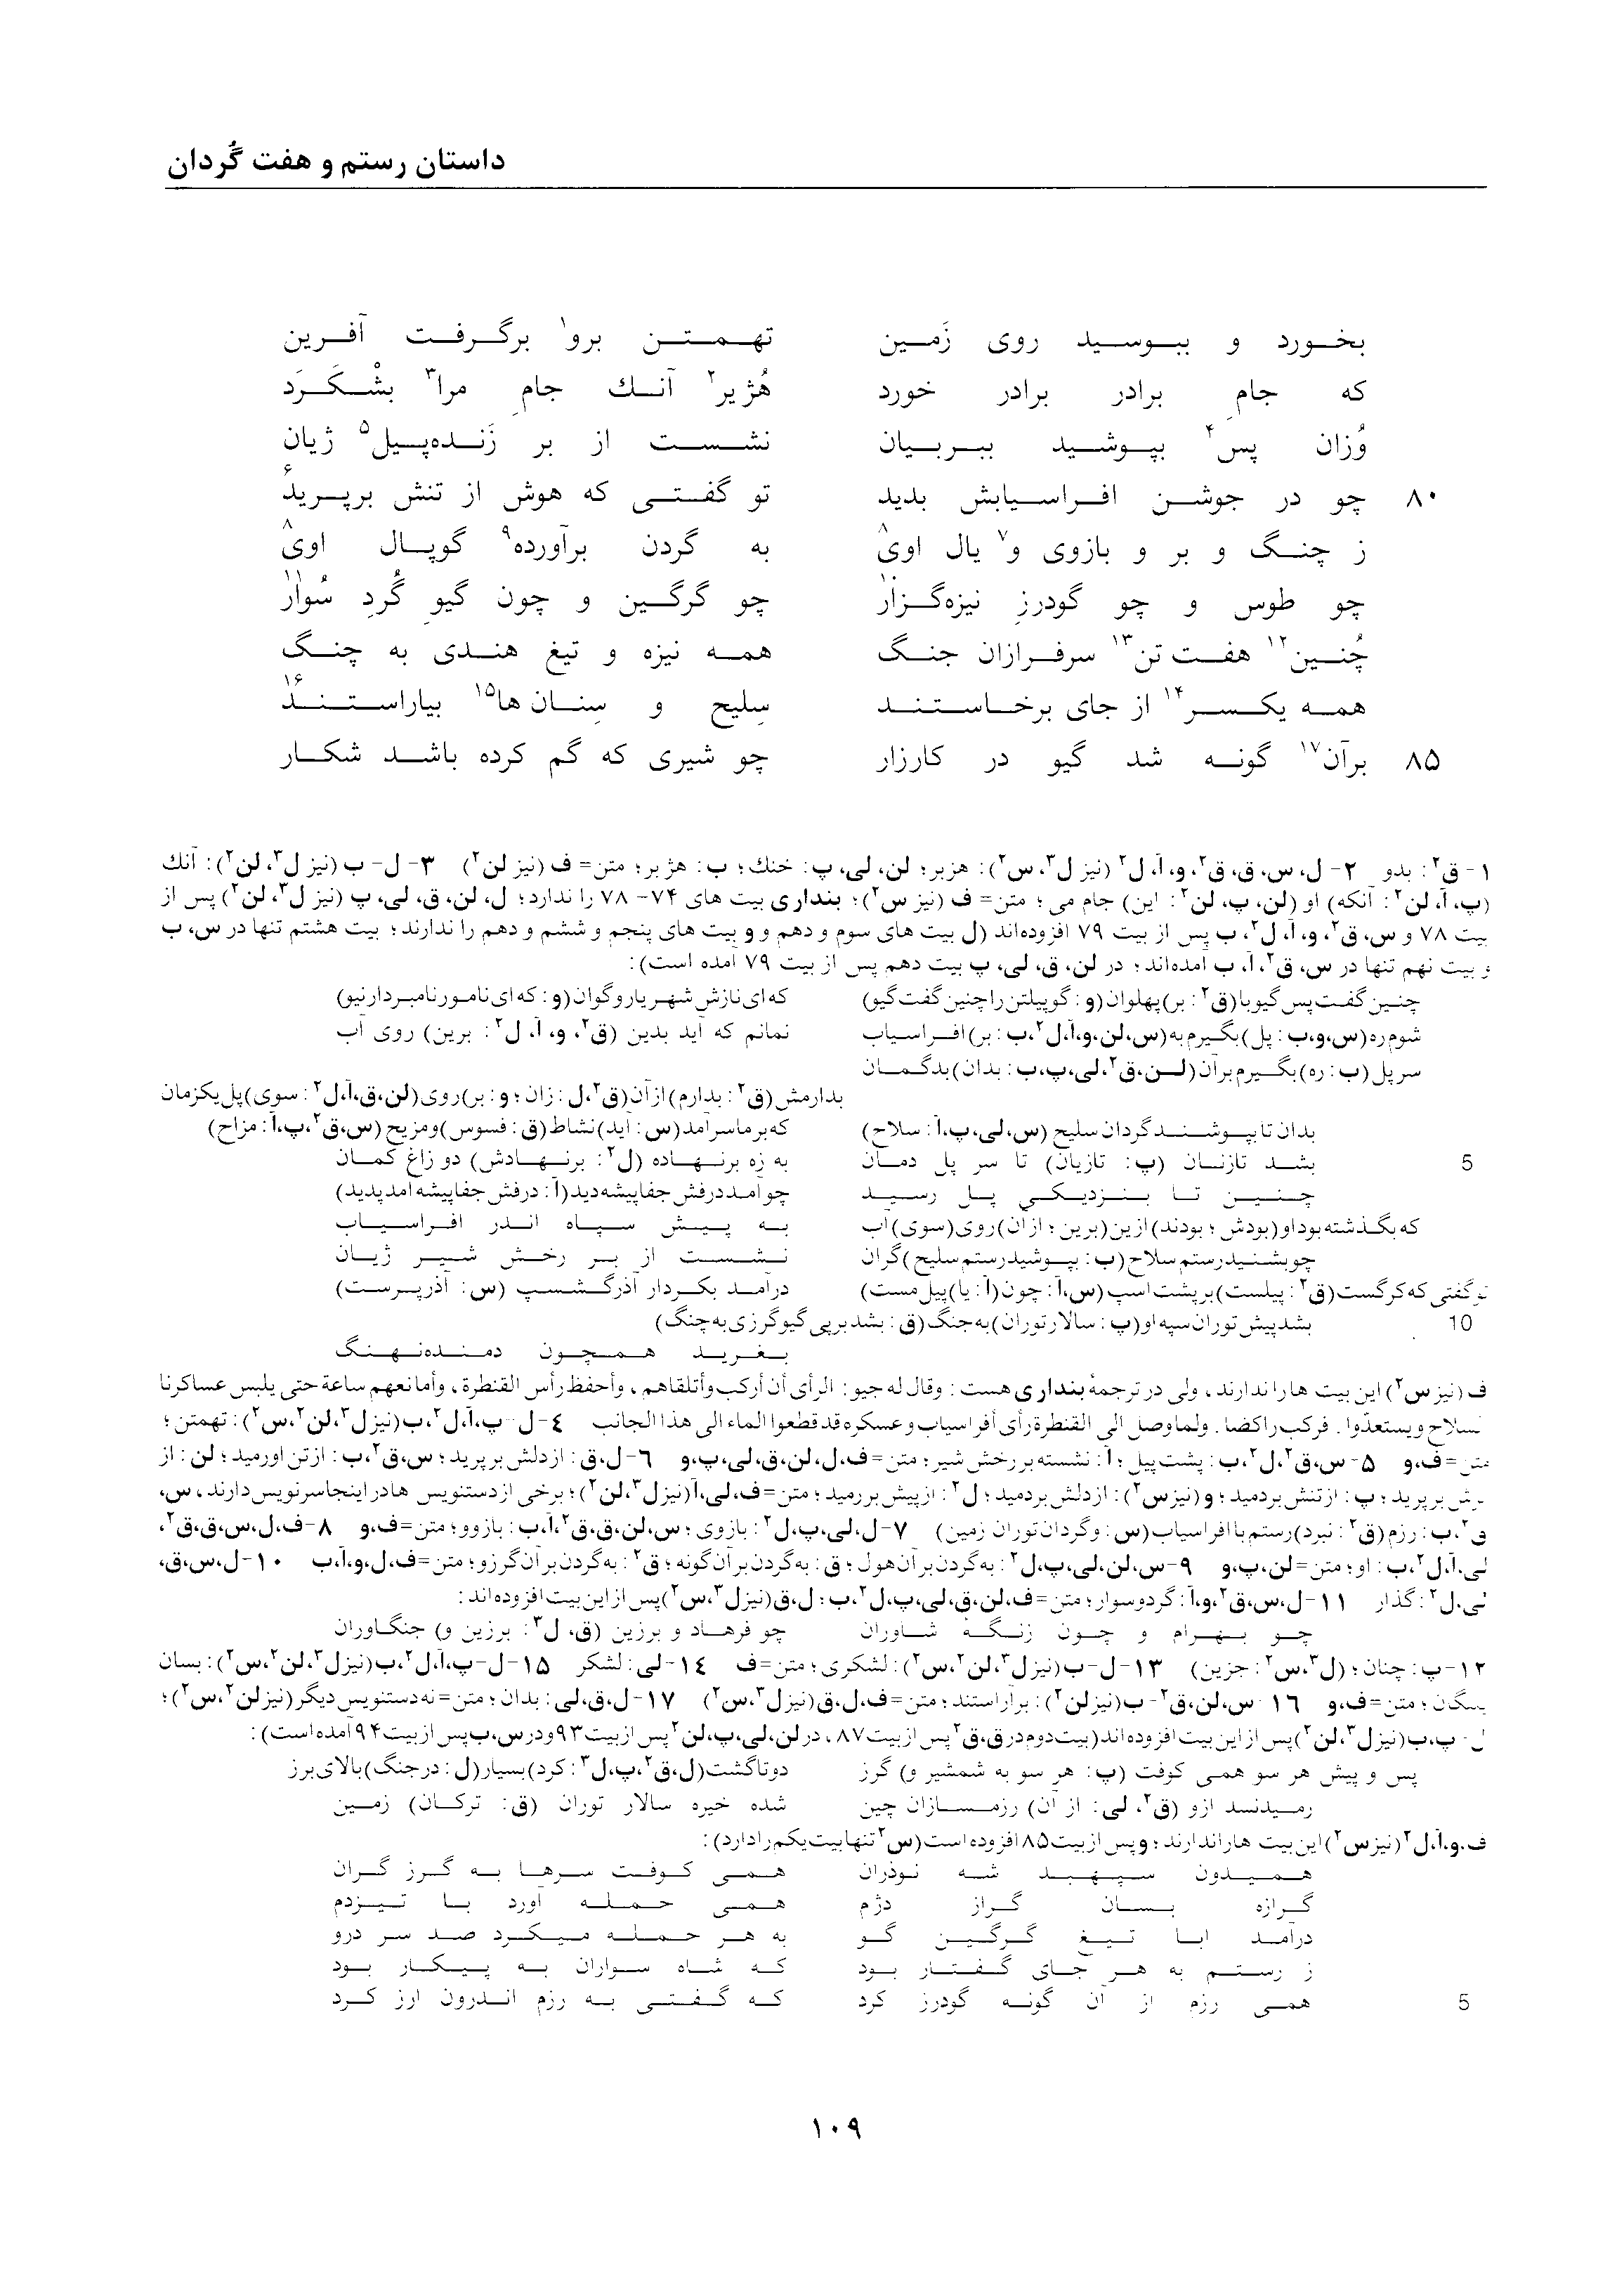 داستان رستم و هفت گُردان
بخورد و ببوسید روی زَمین تهمتن برو۱ برگرفت آفرین
که جامِ برادر برادر خورد هُژیر۲ آنك جامِ مرا۳ بشْکَرَد
وُزان پس۴ بپوشید ببربیان نشست از بر زَنده‌پیل۵ ژیان
۸۰ چو در جوشن افراسیابش بدید تو گفتی که هوش از تنش برپرید۶
ز چنگ و بر و بازوی و۷ یال اوی۸ به گردن برآورده۹ گوپال اوی۸
چو طوس و چو گودرزِ نیزه‌گزار۱۰ چو گرگین و چون گیوِ گُردِ سُوار۱۱
چُنین۱۲ هفت تن۱۳ سرفرازان جنگ همه نیزه و تیغ هندی به چنگ
همه یکسر۱۴ از جای برخاستند سِلیح و سِنان ها۱۵ بیاراستند۱۶
۸۵ برآن۱۷ گونه شد گیو در کارزار چو شیری که گم کرده باشد شکار
۱- ق۲: بدو ۲- ل، س، ق، ق۲، و، آ، ل۲ (نیز ل۳، س۲): هزبر؛ لن، لی، پ: خنك؛ ب: هژبر؛ متن= ف (نیز لن۲) ۳- ل- ب (نیز ل۳، لن۲): آنك
(پ، آ، لن۲: آنکه) او (لن، پ، لن۲: این) جام می؛ متن= ف (نیز س۲)؛ بنداری بیت های ۷۴- ۷۸ را ندارد؛ ل، لن، ق، لی، پ (نیز ل۳، لن۲) پس از
بیت ۷۸ و س، ق۲، و، آ، ل۲، ب پس از بیت ۷۹ افزوده‌اند (ل بیت های سوم و دهم و و بیت های پنجم و ششم و دهم را ندارند؛ بیت هشتم تنها در س، ب
و بیت نهم تنها در س، ق۲، آ، ب آمده‌اند؛ در لن، ق، لی، پ بیت دهم پس از بیت ۷۹ آمده است):
چنین گفت پس گیو با (ق۲: بر) پهلوان (و: گو پیلتن را چنین گفت گیو) که ای نازش شهریار و گوان (و: که ای نامور نامبردار نیو)
شوم ره (س، و، ب: پل) بگیرم به (س، لن، و، آ، ل۲، ب: بر) افراسیاب نمانم که آید بدین (ق۲، و، آ، ل۲: برین) روی آب
سر پل (ب: ره) بگیرم برآن (لن، ق۲، لی، پ، ب: بدان) بدگمان
بدارمش (ق۲: بدارم) از آن (ق۲، ل: زان؛ و: بر) روی (لن، ق، آ، ل۲: سوی) پل یکزمان
بدان تا بپوشند گردان سلیح (س، لی، پ، آ: سلاح) که بر ما سرآمد (س: آید) نشاط (ق: فسوس) و مزیح (س، ق۲، پ، آ: مزاح)
5 بشد تازنان (پ: تازیان) تا سر پل دمان به زه بر نهاده (ل۲: برنهادش) دو زاغ کمان
چنین تا بنزدیکی پل رسید چو آمد درفش جفاپیشه دید (آ: درفش جفاپیشه آمد پدید)
که بگذشته بود او (بودش؛ بودند) از ین (برین؛ از آن) روی (سوی) آب به پیش سپاه اندر افراسیاب
چو بشنید رستم سلاح (ب: بپوشید رستم سلیح) گران نشست از بر رخش شیر ژیان
تو گفتی که کرگست (ق۲: پیلست) بر پشت اسپ (س، آ: چون (آ: یا) پیل مست) درآمد بکردار آذرگشسپ (س: آذرپرست)
10 بشد پیش توران سپه او (پ: سالار توران) به جنگ (ق: بشد بر پی گیو گرزی به چنگ)
بغرید همچون دمنده نهنگ
ف (نیز س۲) این بیت ها را ندارند، ولی در ترجمهٔ بنداری هست: وقال له جیو: الرأی أن أرکب وأتلقاهم، وأحفظ رأس القنطرة، وأمانعهم ساعة حتی یلبس عساکرنا
السلاح ویستعدّوا. فرکب راکضا. ولما وصل الی القنطرة رأی أفراسیاب وعسکره قد قطعوا الماء الی هذا الجانب ۴- ل- پ، آ، ل۲، ب (نیز ل۳، لن۲، س۲): تهمتن؛
متن= ف، و ۵- س، ق۲، ل۲، ب: پشت پیل؛ آ: نشسته بر رخش شیر؛ متن= ف، ل، لن، ق، لی، پ، و ۶- ل، ق: از دلش برپرید؛ س، ق۲، ب: از تن اورمید؛ لن: از
برش برپرید؛ پ: از تنش بردمید؛ و (نیز س۲): از دلش بردمید؛ ل۲: از پیش بررمید؛ متن= ف، لی، آ (نیز ل۳، لن۲)؛ برخی از دستنویس ها در اینجا سرنویس دارند، س،
ق۲، ب: رزم (ق۲: نبرد) رستم با افراسیاب (س: و گردان توران زمین) ۷- ل، لی، پ، ل۲: بازوی؛ س، لن، ق، ق۲، آ، ب: بازو و؛ متن= ف، و ۸- ف، ل، س، ق، ق۲،
لی، آ، ل۲، ب: او؛ متن= لن، پ، و ۹- س، لن، لی، پ، ل۲: به گردن بر آن هول؛ ق: به گردن بر آن گونه؛ ق۲: به گردن بر آن گرز و؛ متن= ف، ل، و، آ، ب ۱۰- ل، س، ق،
لی، ل۲: گذار ۱۱- ل، س، ق۲، و، آ: گرد و سوار؛ متن= ف، لن، ق، لی، پ، ل۲، ب؛ ل، ق (نیز ل۳، س۲) پس از این بیت افزوده‌اند:
چو بهرام و چون زنگهٔ شاوران چو فرهاد و برزین (ق، ل۳: برزین و) جنگاوران
۱۲- پ: چنان؛ (ل۳، س۲: جزین) ۱۳- ل- ب (نیز ل۳، لن۲، س۲): لشکری؛ متن= ف ۱۴- لی: لشکر ۱۵- ل- پ، آ، ل۲، ب (نیز ل۳، لن۲، س۲): بسان
پلنگان؛ متن= ف، و ۱۶- س، لن، ق۲- ب (نیز لن۲): برآراستند؛ متن= ف، ل، ق (نیز ل۳، س۲) ۱۷- ل، ق، لی: بدان؛ متن= نه دستنویس دیگر (نیز لن۲، س۲)؛
ل- پ، ب (نیز ل۳، لن۲) پس از این بیت افزوده‌اند (بیت دوم در ق، ق۲ پس از بیت ۸۷، در لن، لی، پ، لن۲ پس از بیت ۹۳ و در س، ب پس از بیت ۹۴ آمده است):
پس و پیش هر سو همی کوفت (پ: هر سو به شمشیر و) گرز دو تا گشت (ل، ق۲، پ، ل۳: کرد) بسیار (ل: در جنگ) بالای برز
رمیدند ازو (ق۲، لی: از آن) رزمسازان چین شده خیره سالار توران (ق: ترکان) زمین
ف، و، آ، ل۲ (نیز س۲) این بیت ها را ندارند؛ و پس از بیت ۸۵ افزوده است (س۲ تنها بیت یکم را دارد):
همیدون سپهبد شه نوذران همی کوفت سرها به گرز گران
گرازه بسان گراز دژم همی حمله آورد با تیزدم
درآمد ابا تیغ گرگین گو به هر حمله میکرد صد سر درو
ز رستم به هر جای گفتار بود که شاه سواران به پیکار بود
5 همی رزم از آن گونه گودرز کرد که گفتی به رزم اندرون ارز کرد
۱۰۹